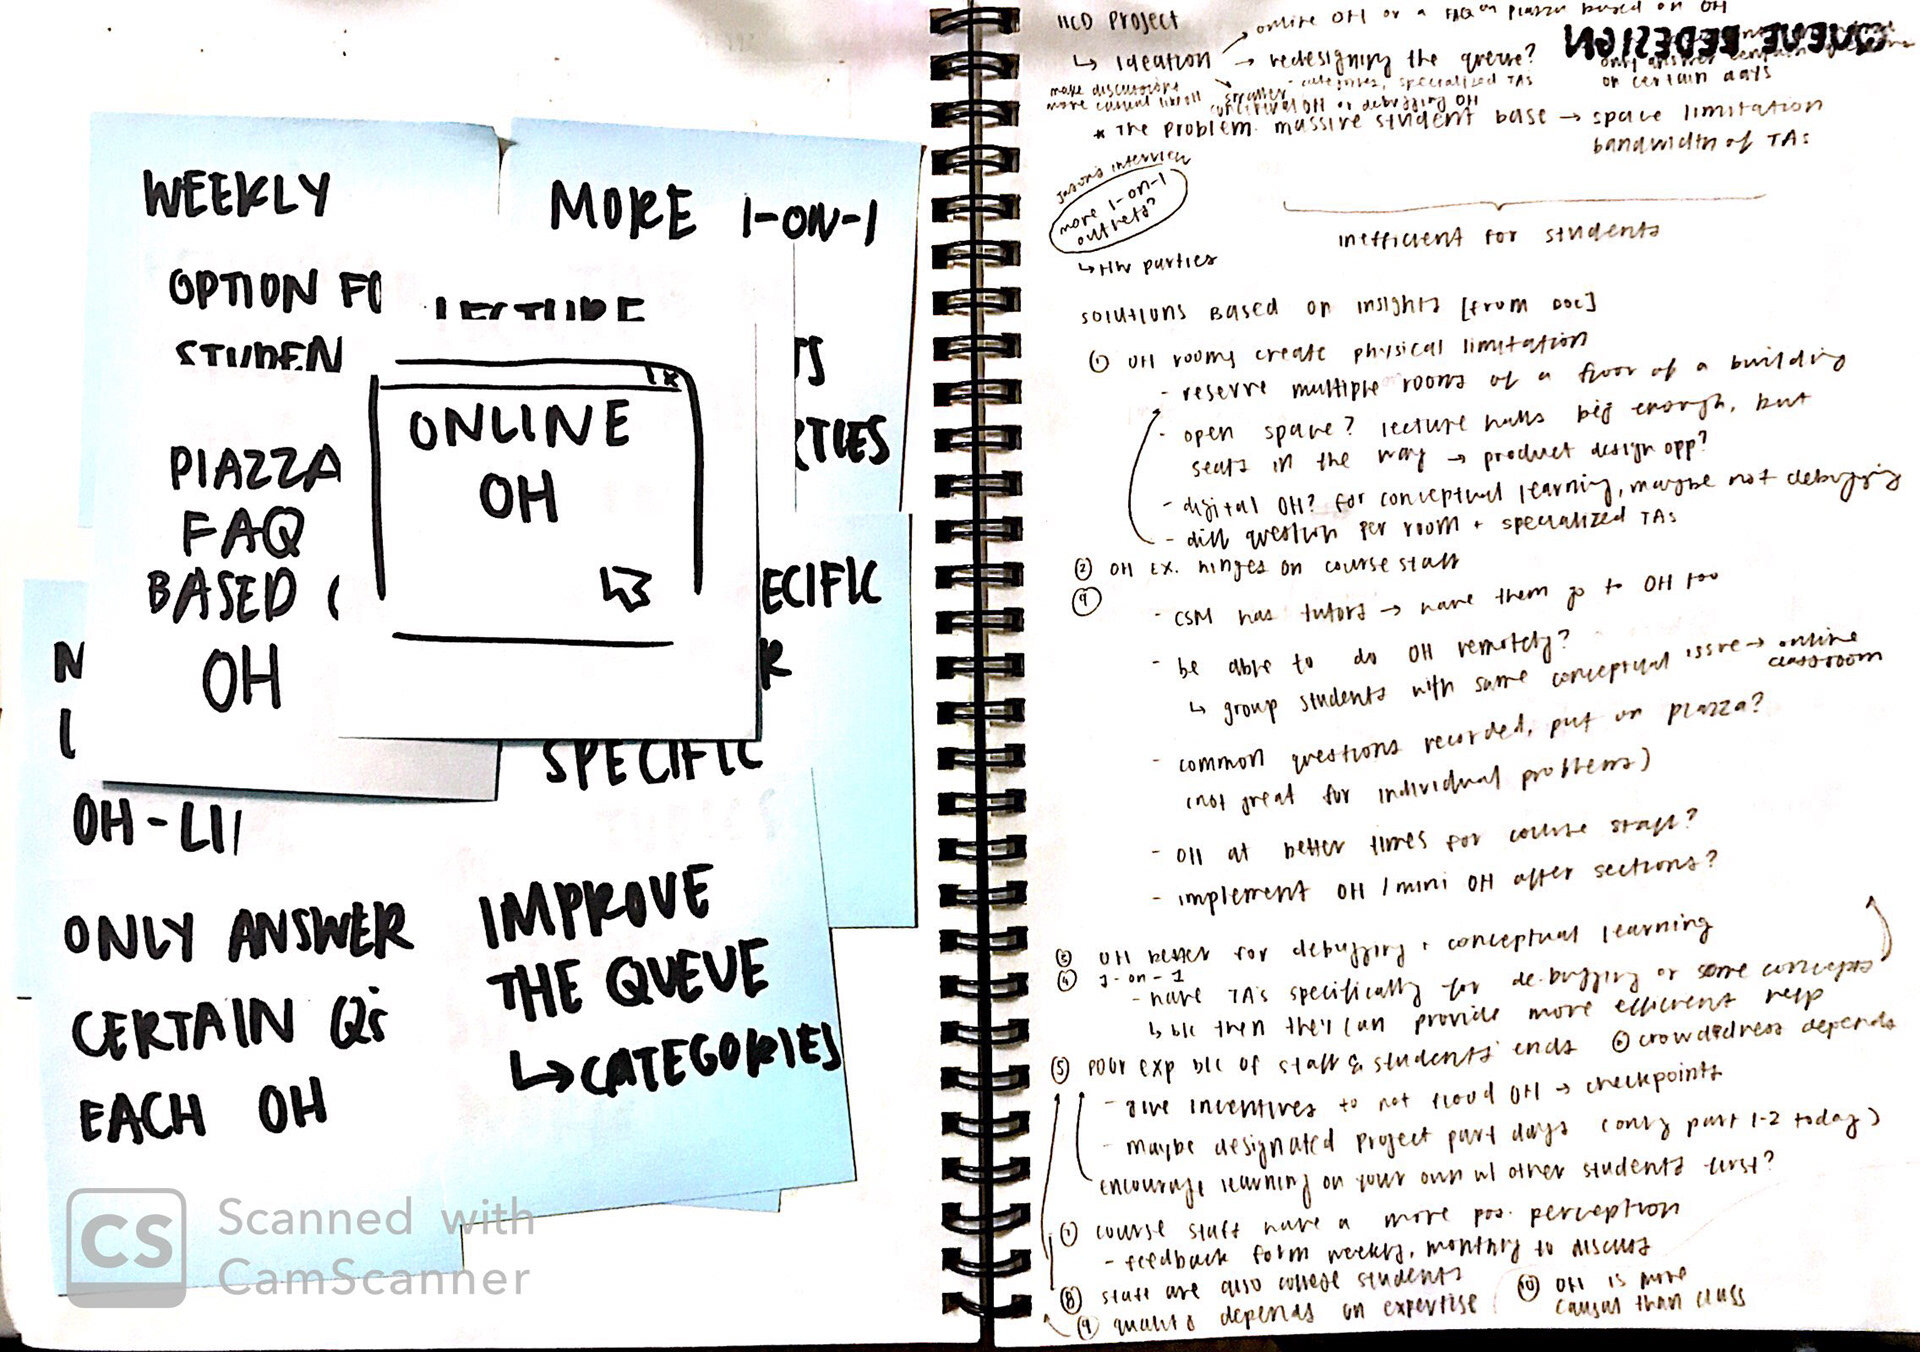 WEEKLY
OPTION FO
STUDEN
PIAZZA
FAQ
BASED
OH
MORE 1-ON-1
LECTURE
ONLINE
OH
TS
RTIES
ECIFIC
R
SPECIFIC
N
OH-LI
ONLY ANSWER
CERTAIN Q's
EACH OH
IMPROVE
THE QUEUE
↳ CATEGORIES
Scanned with
CamScanner
CS
HCD Project
→ online OH or a FAQ on Piazza based on OH
↳ Ideation → redesigning the queue?
QUEUE REDESIGN
only answer certain
on certain days
make discussions
more casual
smaller - categories, specialized TAs
conceptual OH or debugging OH
* The problem. massive student base → space limitation
bandwidth of TAs
Jason's interview
more 1-on-1
outlets?
↳ HW parties
inefficient for students
solutions Based on insights [from Doc]
① OH rooms create physical limitation
- reserve multiple rooms of a floor of a building
- open space? lecture halls big enough, but
seats in the way → product design opp?
- digital OH? for conceptual learning, maybe not debugging
- diff question per room + specialized TAs
② OH Ex. hinges on course staff
⑨
- CSM has tutors → have them go to OH too
- be able to do OH remotely?
↳ group students with same conceptual issue → online
classroom
- common questions recorded, put on piazza?
(not great for individual problems)
- OH at better times for course staff?
- implement OH / mini OH after sections?
③ OH better for debugging + conceptual learning
④ 1-on-1
- have TAs specifically for debugging or some concepts
↳ b/c then they can provide more efficient help
⑤ poor exp b/c of staff & students' ends
⑥ crowdedness depends
- give incentives to not flood OH → checkpoints
- maybe designated project part days (only part 1-2 today)
encourage learning on your own w/ other students first?
⑦ course staff have a more pos. perception
- feedback form weekly, monthly to discuss
⑧ staff are also college students
⑨ quality depends on expertise
⑩ OH is more
casual than class